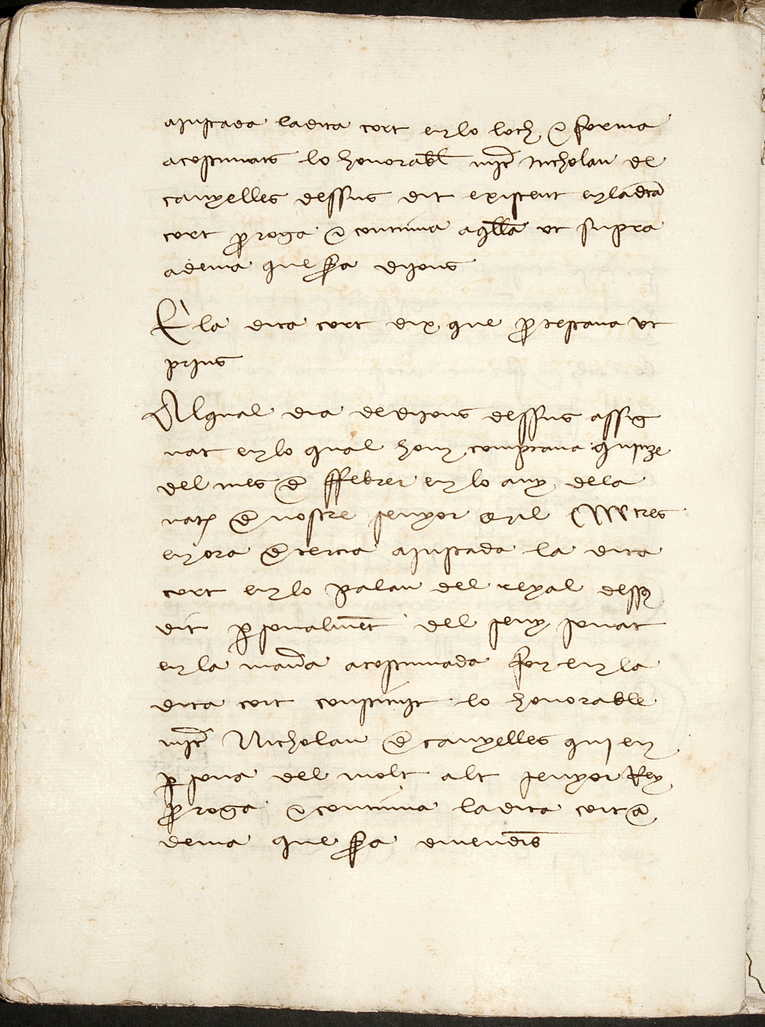 aiustada la dita cort en lo loch e forma
acostumats lo honorabl misser Nicholau de
canyelles dessus dit existent en la dita
cort proroga e continua aqlla ut supra
a dema que sera dijous
E la dita cort dix que protestaua ut
prius
Al qual dia de dijous dessus assig
nat en lo qual hom comptaua quinze
del mes de ffebrer en lo any dela
nat de nostre senyor mil CCCC tres
en ora de tercia aiustada la dita
cort en lo palau del reyal dessus
dit personalment del seny sonat
en la manera acostumada fon en la
dita cort constituit lo honorable
misser Nicholau de canyelles qui en
persona del molt alt senyor Rey
proroga e continua la dita cort a
dema que sera diuendres